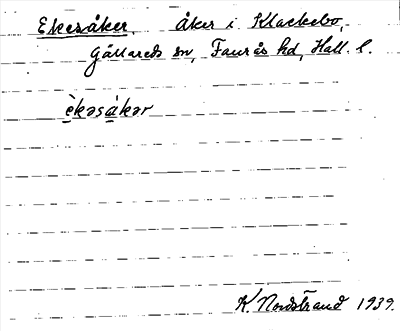 Ekesåker. åker i Klackebo,
Gällareds sn, Faurås hd, Hall. l.
è̱kəsà̱kər
K. Nordstrand 1939.